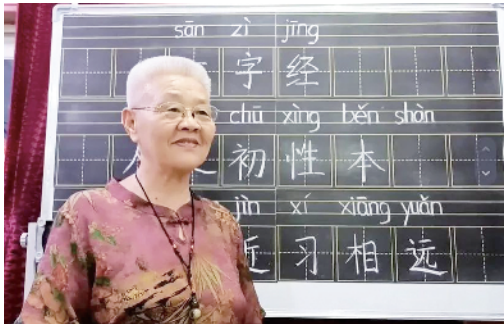 sān zì jīng
字经
chū xìng běn shàn
初性本
jìn xí xiāng yuǎn
近习相远